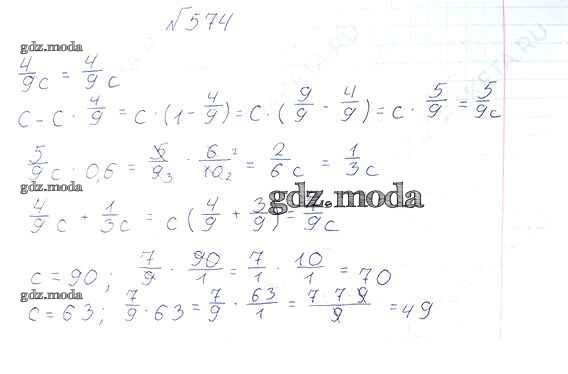 №574
gdz.moda
4/9 c = 4/9 c
c - c · 4/9 = c · (1 - 4/9) = c · (9/9 - 4/9) = c · 5/9 = 5/9 c
5/9 c · 0,6 = 5/9 3 · 6/10 2 = 2/6 c = 1/3 c
gdz.moda
gdz.moda
4/9 c + 1/3 c = c (4/9 + 3/9) = 7/9 c
gdz.moda
c = 90; 7/9 · 90/1 = 7/1 · 10/1 = 70
gdz.moda
c = 63; 7/9 · 63 = 7/9 · 63/1 = 7·7·9/9 = 49